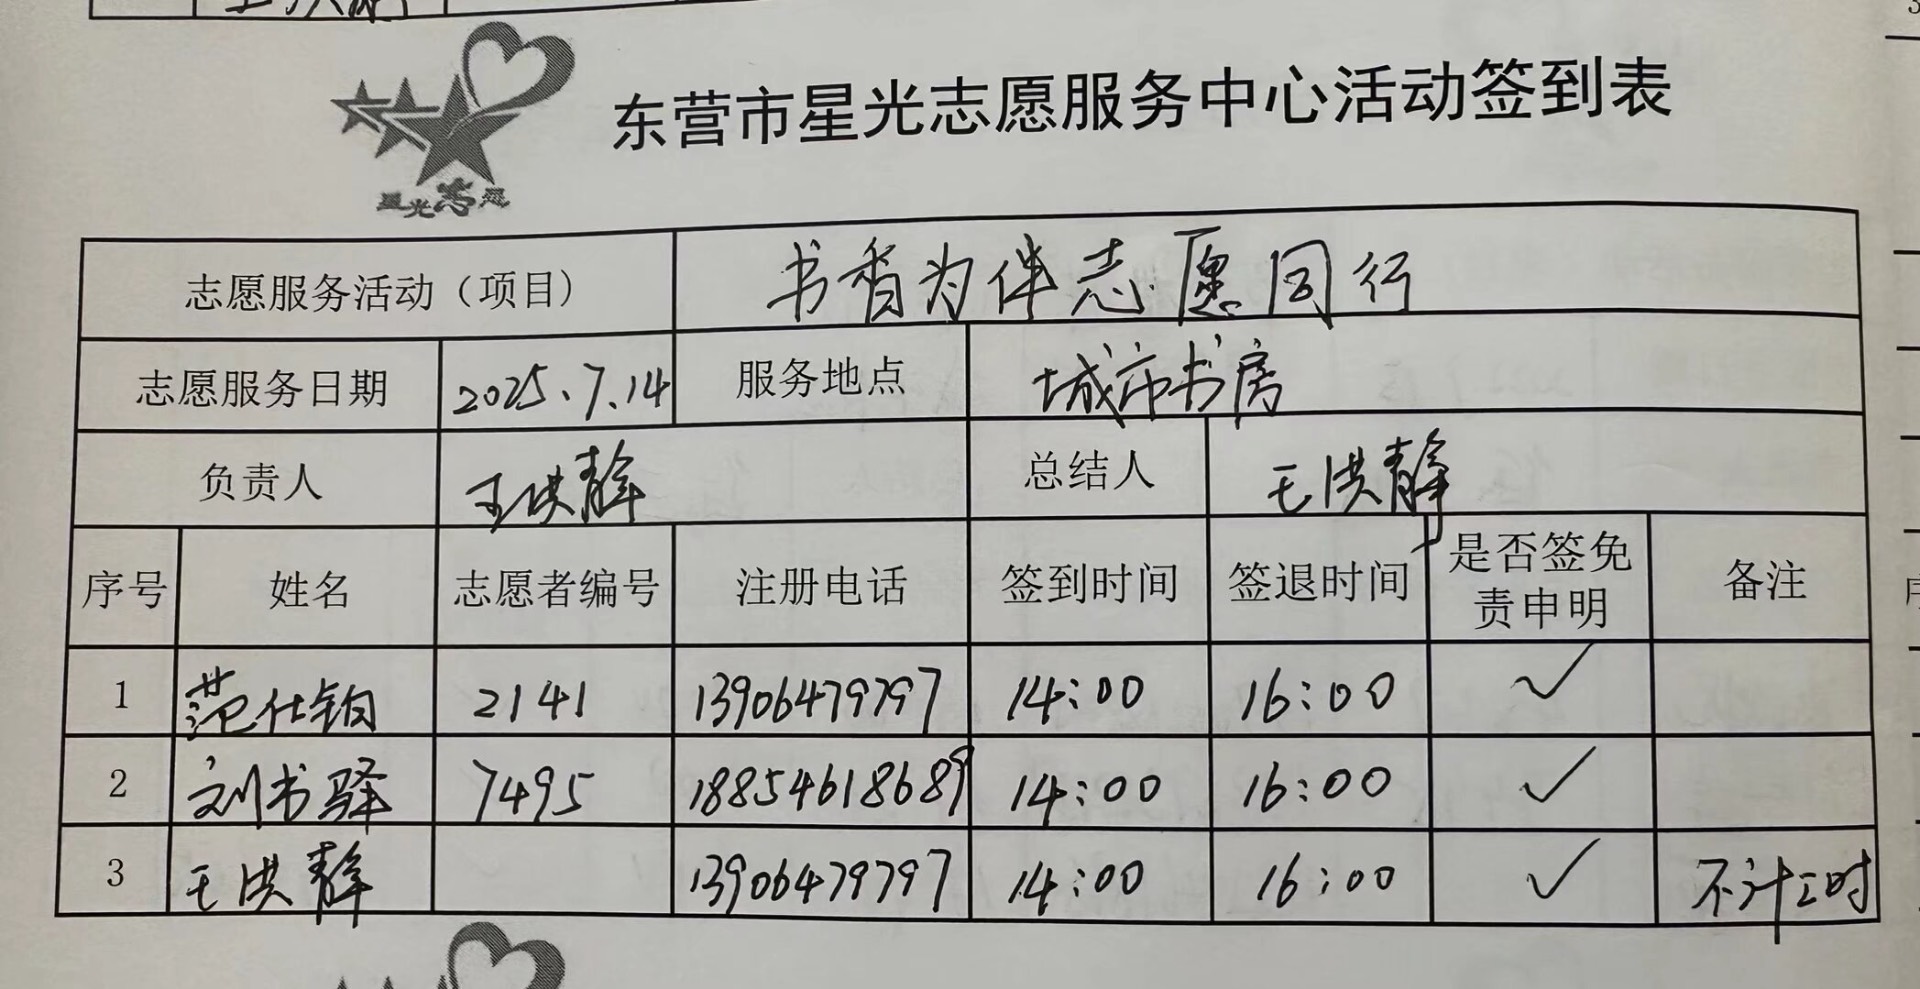 东营市星光志愿服务中心活动签到表
星光志愿
志愿服务活动（项目） 书香为伴志愿同行
志愿服务日期 2025.7.14 服务地点 城市书房
负责人 王洪静 总结人 王洪静
序号 姓名 志愿者编号 注册电话 签到时间 签退时间 是否签免责申明 备注
1 范仕铂 2141 13906479797 14:00 16:00 ✓
2 刘书驿 7495 18854618689 14:00 16:00 ✓
3 王洪静 13906479797 14:00 16:00 ✓ 不计工时